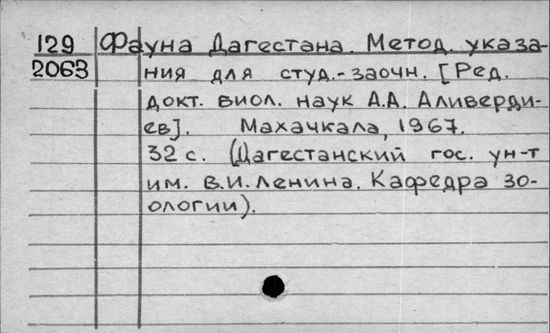 129 Фауна Дагестана. Метод. указа-
2063 ния для студ.-заочн. [Ред.
докт. биол. наук А.А. Аливерди-
ев]. Махачкала, 1967.
32 с. (Дагестанский гос. ун-т
им. В.И. Ленина. Кафедра зо-
ологии).